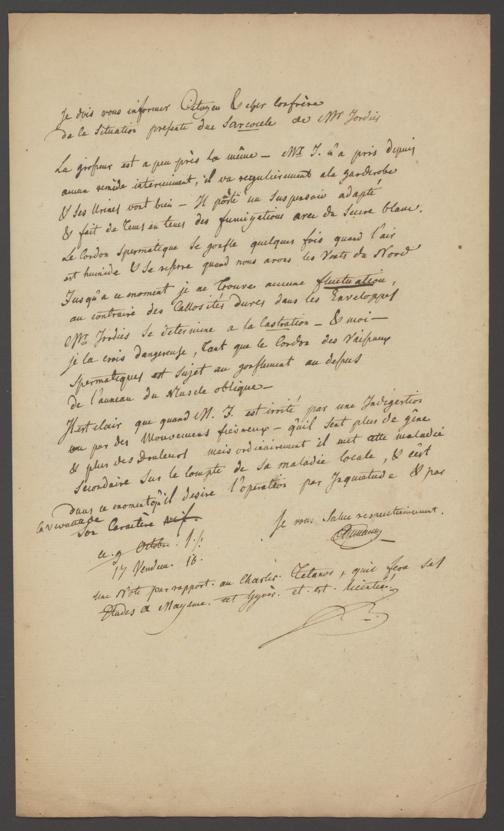 Je dois vous informer Citoyen & cher Confrère
de la Situation presente du Sarcocele de Mr Jordis
La grosseur est a peu près la même – Mr J. n'a pris depuis
aucun remède interieurement, il va regulierement a la garderobe
& ses Urines vont bien – Il porte un Suspensoir adapté
& fait de tems en tems des fumigations avec du Sucre blanc.
Le Cordon Spermatique se gonfle quelques fois quand l'air
est humide & se repose quand nous avons les Vents du Nord
Jusqu'a ce moment je ne trouve aucune fluctuation,
au contraire des Callosités dures dans les Enveloppes
Mr Jordis se determine a la Castration – & moi –
je la crois dangereuse, tant que le Cordon des Vaisseaux
Spermatiques est sujet au gonflement au depus
de l'anneau du Muscle oblique –
Il est clair que quand M. J. est irrité par une Indigestion
ou par des Mouvemens – qu'il sent plus de gêne
& plus des Douleurs mais ordinairement il met cette maladie
Secondaire sur le compte de sa maladie locale, & c'est
dans ce moment qu'il desire l'opération par Inquietude & par
la vivacité de son Caractère
Je vous Salue respectueusement.
ce 9 Octobre
17 Vendem. 16.
une Note par rapport au Tetanos, qui fera ses
Etudes a Mayence et est